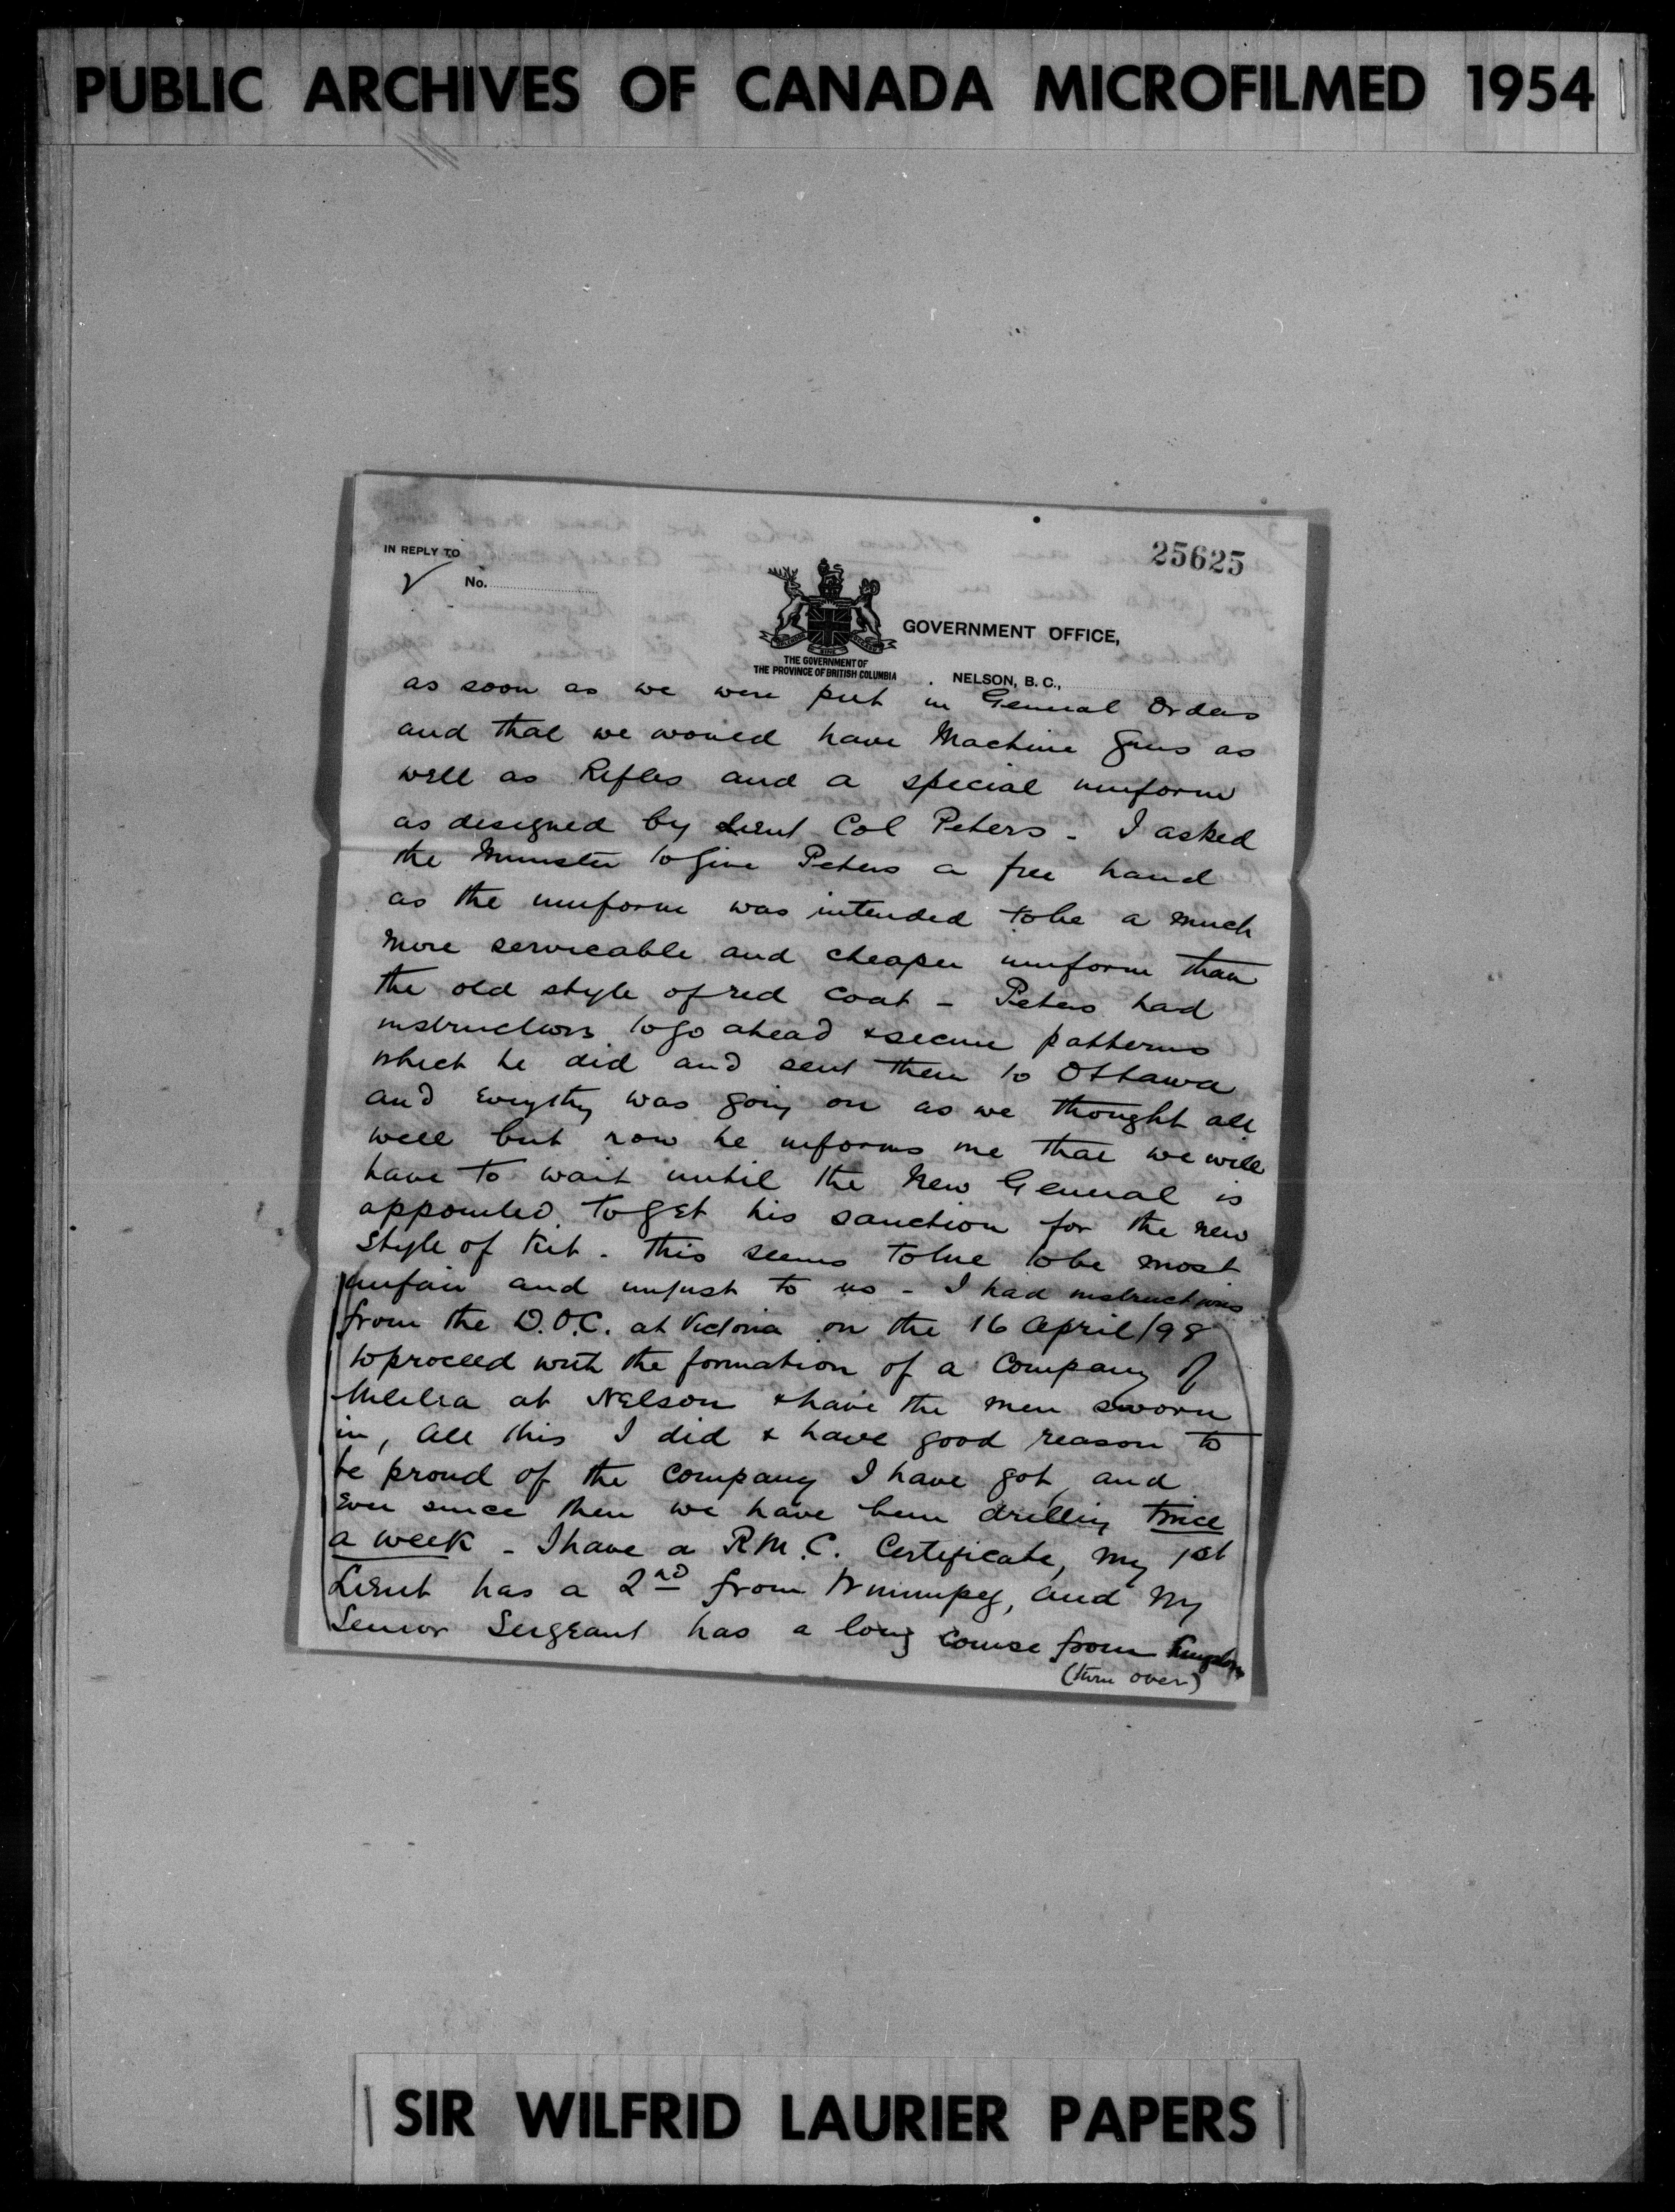 PUBLIC ARCHIVES OF CANADA MICROFILMED 1954
IN REPLY TO
No.
25625
GOVERNMENT OFFICE,
THE GOVERNMENT OF
THE PROVINCE OF BRITISH COLUMBIA
NELSON, B. C.,
as soon as we were put in General Orders
and that we would have Machine Guns as
well as Rifles and a special uniform
as designed by Lieut Col Peters - I asked
the Minister to give Peters a free hand
as the uniform was intended to be a much
more servicable and cheaper uniform than
the old style of red coat - Peters had
instructions to go ahead & secure patterns
which he did and sent them to Ottawa
and everythg was going on as we thought all
well but now he informs me that we will
have to wait until the New General is
appointed to get his sanction for the new
style of Kit - this seems to me to be most
unfair and unjust to us - I had instructions
from the D.O.C. at Victoria on the 16 April/98
to proceed with the formation of a Company of
Militia at Nelson & have the men sworn
in, all this I did & have good reason to
be proud of the company I have got, and
ever since then we have been drilling twice
a week - I have a R.M.C. Certificate, my 1st
Lieut has a 2nd from Winnipeg, and my
Senior Sergeant has a long course from Kingston
(turn over)
SIR WILFRID LAURIER PAPERS